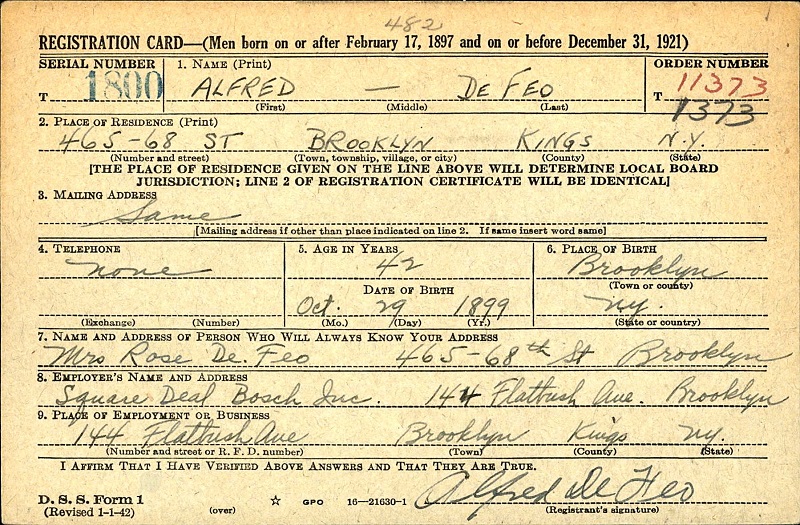 482
REGISTRATION CARD—(Men born on or after February 17, 1897 and on or before December 31, 1921)
SERIAL NUMBER 1. NAME (Print) ORDER NUMBER
T 1800 ALFRED — DE FEO T 11373
(First) (Middle) (Last) 1373
2. PLACE OF RESIDENCE (Print)
465-68 ST BROOKLYN KINGS N.Y.
(Number and street) (Town, township, village, or city) (County) (State)
[THE PLACE OF RESIDENCE GIVEN ON THE LINE ABOVE WILL DETERMINE LOCAL BOARD
JURISDICTION; LINE 2 OF REGISTRATION CERTIFICATE WILL BE IDENTICAL]
3. MAILING ADDRESS
Same
[Mailing address if other than place indicated on line 2. If same insert word same]
4. TELEPHONE 5. AGE IN YEARS 6. PLACE OF BIRTH
none 42 Brooklyn
DATE OF BIRTH (Town or county)
Oct. 29 1899 NY.
(Exchange) (Number) (Mo.) (Day) (Yr.) (State or country)
7. NAME AND ADDRESS OF PERSON WHO WILL ALWAYS KNOW YOUR ADDRESS
Mrs Rose De. Feo 465-68th St Brooklyn
8. EMPLOYER'S NAME AND ADDRESS
Square Deal Bosch Inc. 144 Flatbush Ave. Brooklyn
9. PLACE OF EMPLOYMENT OR BUSINESS
144 Flatbush Ave Brooklyn Kings NY.
(Number and street or R. F. D. number) (Town) (County) (State)
I AFFIRM THAT I HAVE VERIFIED ABOVE ANSWERS AND THAT THEY ARE TRUE.
D. S. S. Form 1
(Revised 1-1-42) (over) ☆ GPO 16—21630-1 Alfred De Feo
(Registrant's signature)